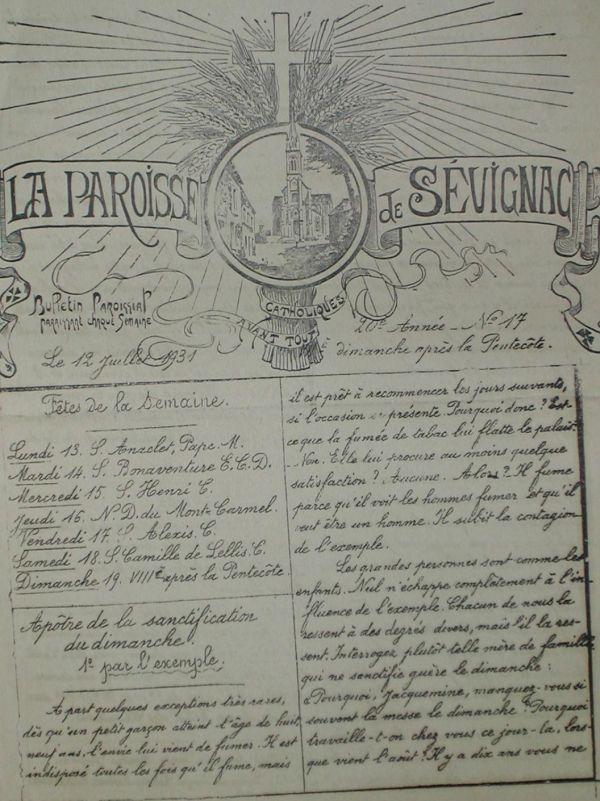 LA PAROISSE de SÉVIGNAC
Bulletin Paroissial
paraissant chaque Semaine
CATHOLIQUES
AVANT TOUT
20e Année _ No 17
Le 12 Juillet 1931
dimanche après la Pentecôte.
Fêtes de la Semaine.
Lundi 13. S. Anaclet, Pape. M.
Mardi 14. S. Bonaventure E.C.D.
Mercredi 15. S. Henri C.
Jeudi 16. N.D. du Mont Carmel.
Vendredi 17. S. Alexis. C.
Samedi 18. S. Camille de Lellis. C.
Dimanche 19. VIIIe après la Pentecôte.
Apôtre de la sanctification
du dimanche.
1o par l'exemple.
A part quelques exceptions très rares,
dès qu'un petit garçon atteint l'âge de huit,
neuf ans, l'envie lui vient de fumer. Il est
indisposé toutes les fois qu'il fume, mais
il est prêt à recommencer les jours suivants,
si l'occasion se présente. Pourquoi donc? Est-
ce que la fumée de tabac lui flatte le palais?
_ Non. Elle lui procure au moins quelque
satisfaction? Aucune. Alors? Il fume
parce qu'il voit les hommes fumer et qu'il
veut être un homme. Il subit la contagion
de l'exemple.
Les grandes personnes sont comme les
enfants. Nul n'échappe complètement à l'in-
fluence de l'exemple. Chacun de nous la
ressent à des degrés divers, mais il la res-
sent. Interrogez plutôt telle mère de famille
qui ne sanctifie guère le dimanche:
« Pourquoi, Jacquemine, manquez-vous si
souvent la messe le dimanche? Pourquoi
travaille-t-on chez vous ce jour-là, lors-
que vient l'août? Il y a dix ans vous ne